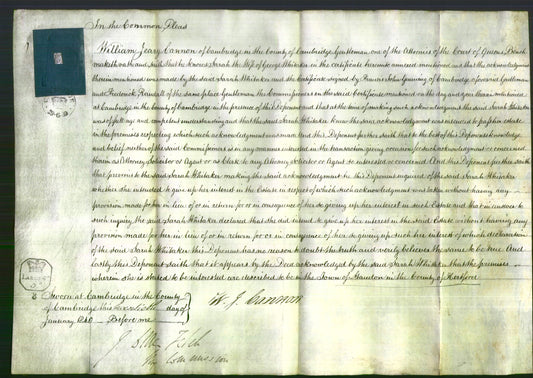 In the Common Pleas
William Jeary Cannon of Cambridge in the County of Cambridge Gentleman one of the Attornies of the Court of Queens Bench
maketh oath and saith that he knows Sarah the Wife of George Whitaker in the certificate hereunto annexed mentioned and that the acknowledgment
therein mentioned was made by the said Sarah Whitaker and the Certificate signed by Francis John Gunning of Cambridge aforesaid Gentleman
and Frederick Randall of the same place Gentleman the Commissioners in the said Certificate mentioned on the day and year therein mentioned
at Cambridge in the County of Cambridge in the presence of this Deponent and that at the time of making such acknowledgment the said Sarah Whitaker
was of full age and competent understanding and that the said Sarah Whitaker knew the said acknowledgment was intended to pass her estate
in the premises respecting which such acknowledgment was made And this Deponent further saith that to the best of this Deponents knowledge
and belief neither of the said Commissioners is in any manner interested in the transaction giving occasion for such acknowledgment or concerned
therein as Attorney Solicitor or Agent or as Clerk to any Attorney Solicitor or Agent so interested or concerned And this Deponent further saith
that previous to the said Sarah Whitaker making the said acknowledgment he this Deponent inquired of the said Sarah Whitaker
whether she intended to give up her interest in the Estate in respect of which such acknowledgment was taken without having any
provision made for her in lieu of or in return for or in consequence of her so giving up her interest in such Estate and that in answer to
such inquiry the said Sarah Whitaker declared that she did intend to give up her interest in the said Estate without having any
provision made for her in lieu of or in return for or in consequence of her so giving up such her interest of which declaration
of the said Sarah Whitaker this Deponent has no reason to doubt the truth and verily believes the same to be true And
lastly this Deponent saith that it appears by the Deed acknowledged by the said Sarah Whitaker that the premises
wherein she is stated to be interested are described to be in the Town of in the County of Hertford
Sworn at Cambridge in the County
of Cambridge this day of
January Before me
W. J. Cannon